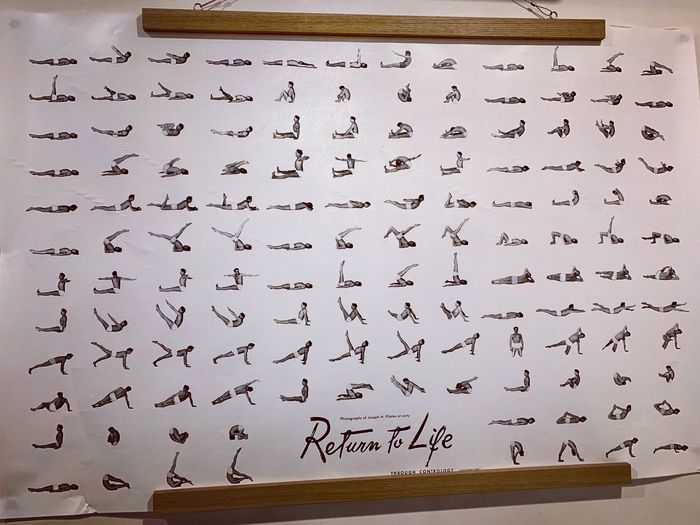 Photographs of Joseph H. Pilates at sixty
Return to Life
THROUGH CONTROLOGY